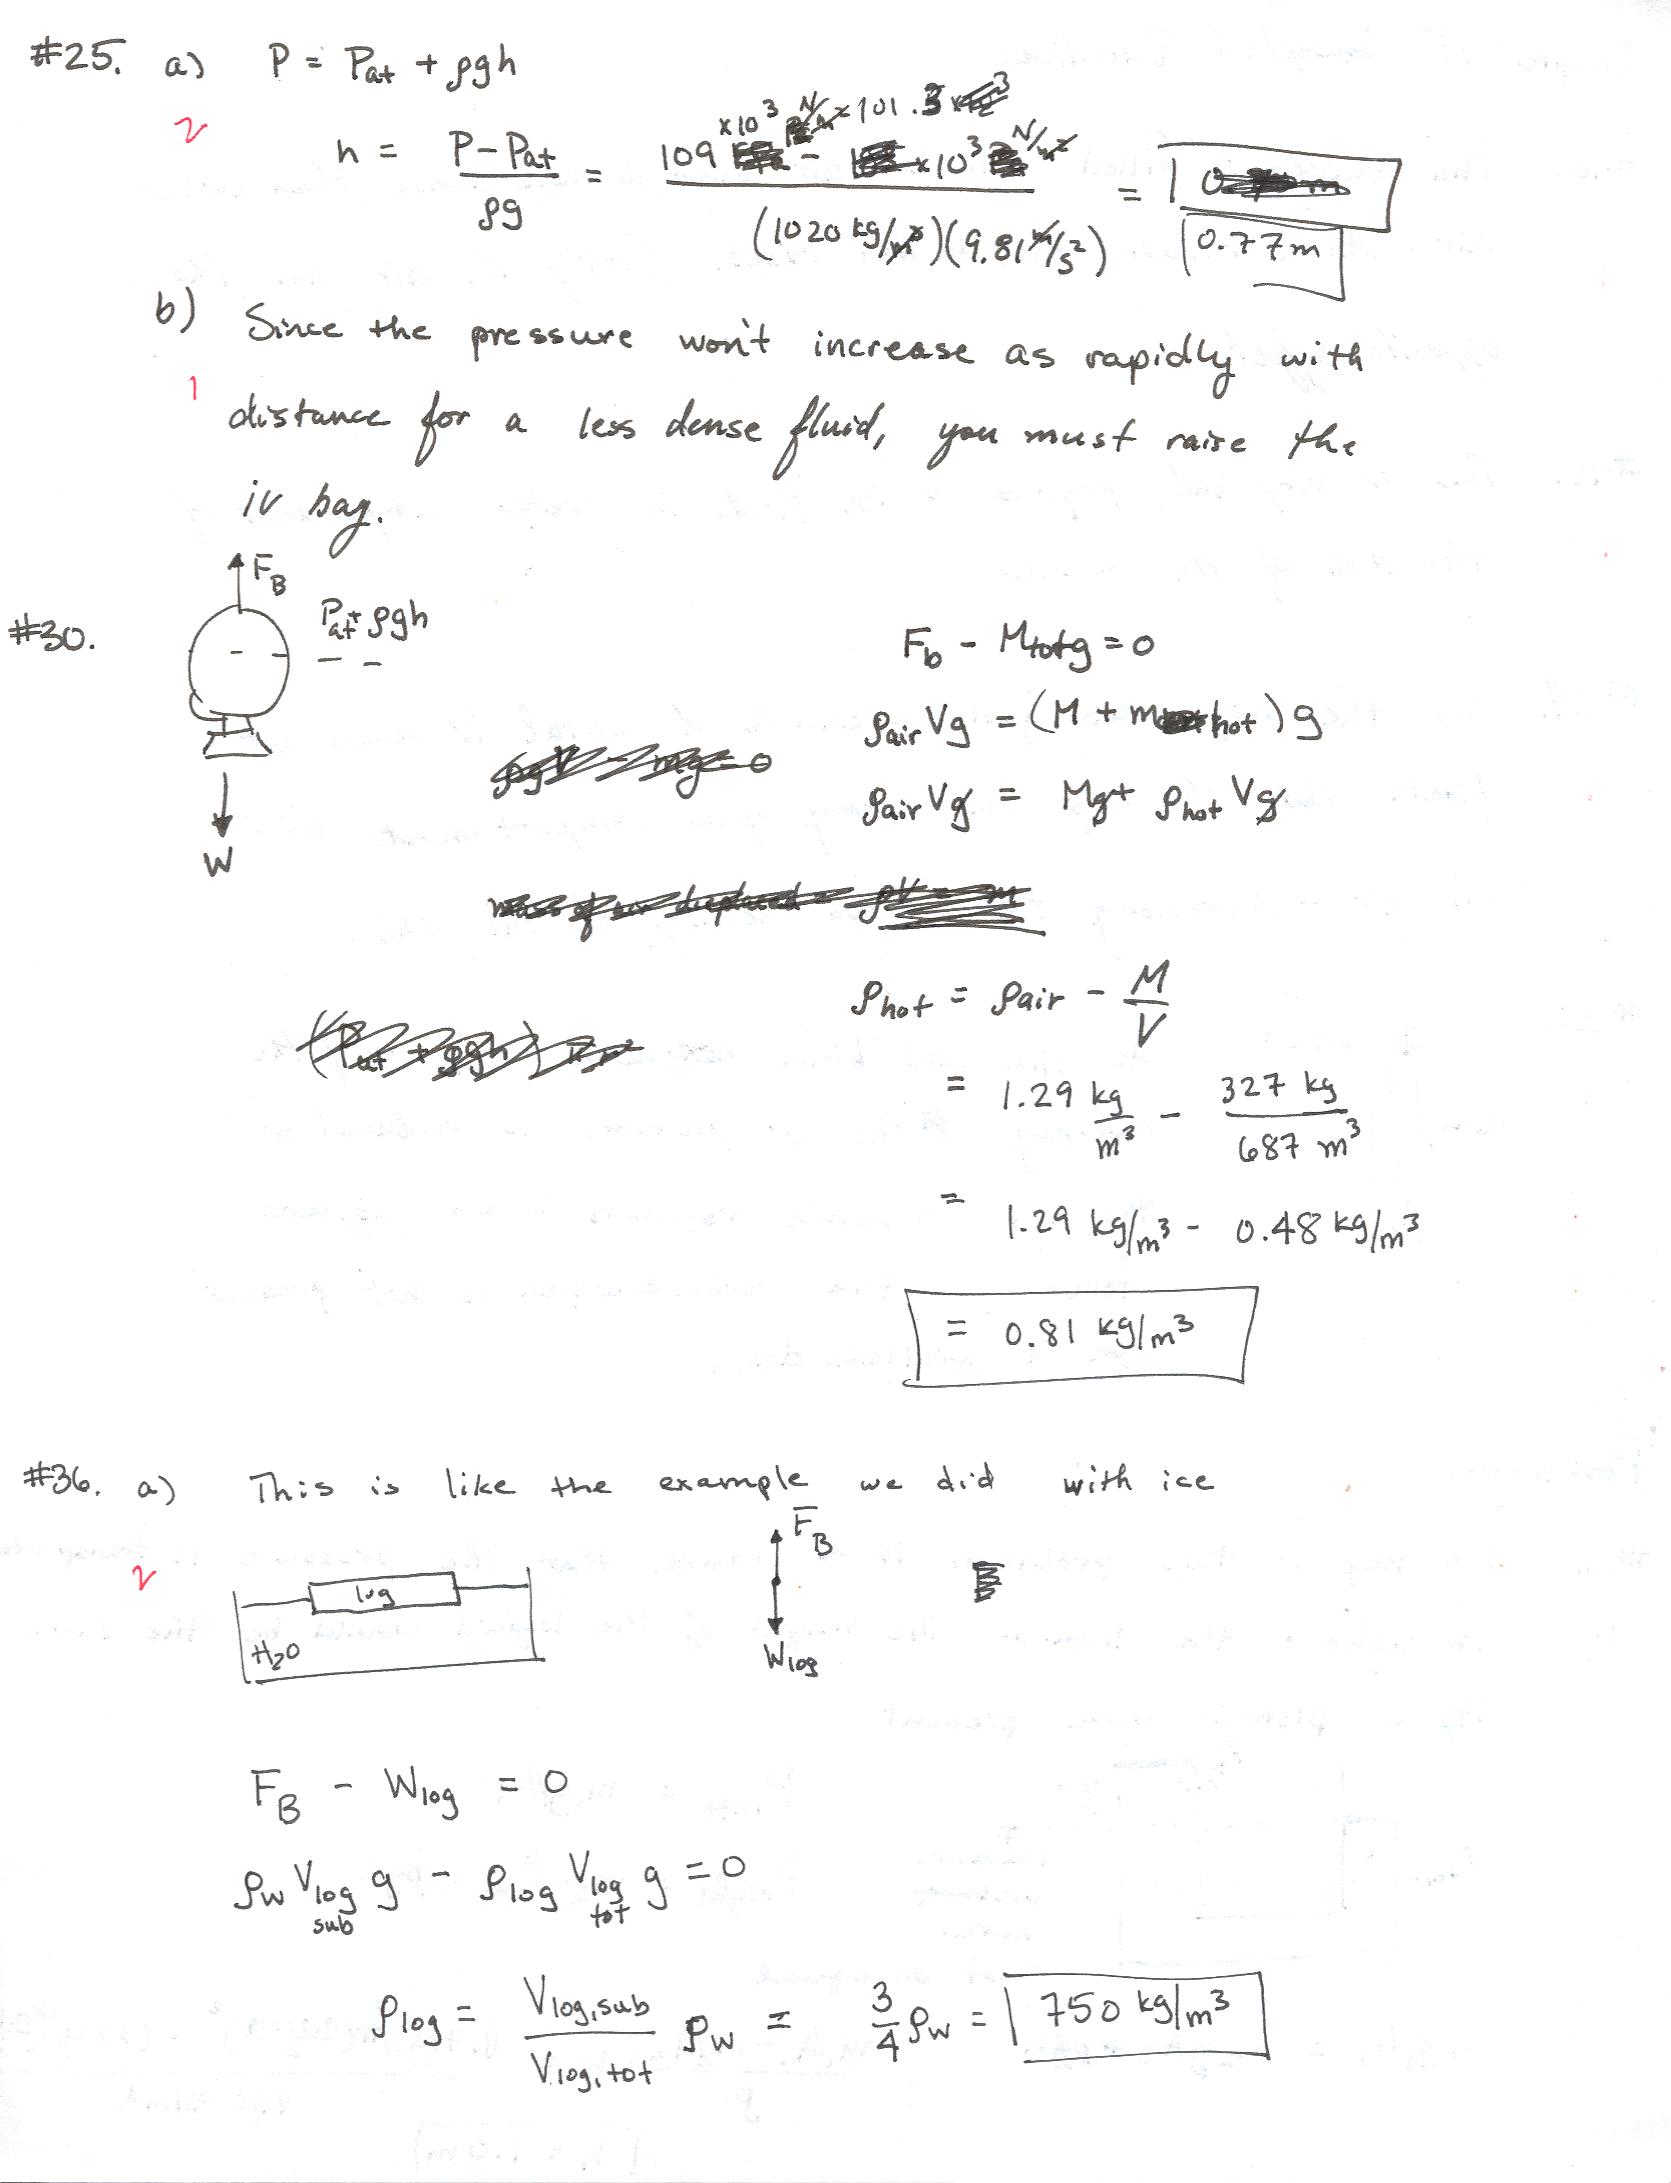 #25. a) P = Pat + ρgh
2
h = P - Pat / ρg = 109 x10³ N/m² - 101.3 x10³ N/m² / (1020 kg/m³)(9.81 m/s²) =
0.77m
b) Since the pressure won't increase as rapidly with
1
distance for a less dense fluid, you must raise the
iv bag.
FB
#30. Pat + ρgh
W
Fb - Mtotg = 0
ρair Vg = (M + mhot) g
ρair Vg = Mg + ρhot Vg
ρhot = ρair - M/V
= 1.29 kg/m³ - 327 kg / 687 m³
= 1.29 kg/m³ - 0.48 kg/m³
= 0.81 kg/m³
#36. a) This is like the example we did with ice
2
log
H₂O
FB
Wlog
FB - Wlog = 0
ρw Vlog sub g - ρlog Vlog tot g = 0
ρlog = Vlog,sub / Vlog,tot ρw = 3/4 ρw = 750 kg/m³